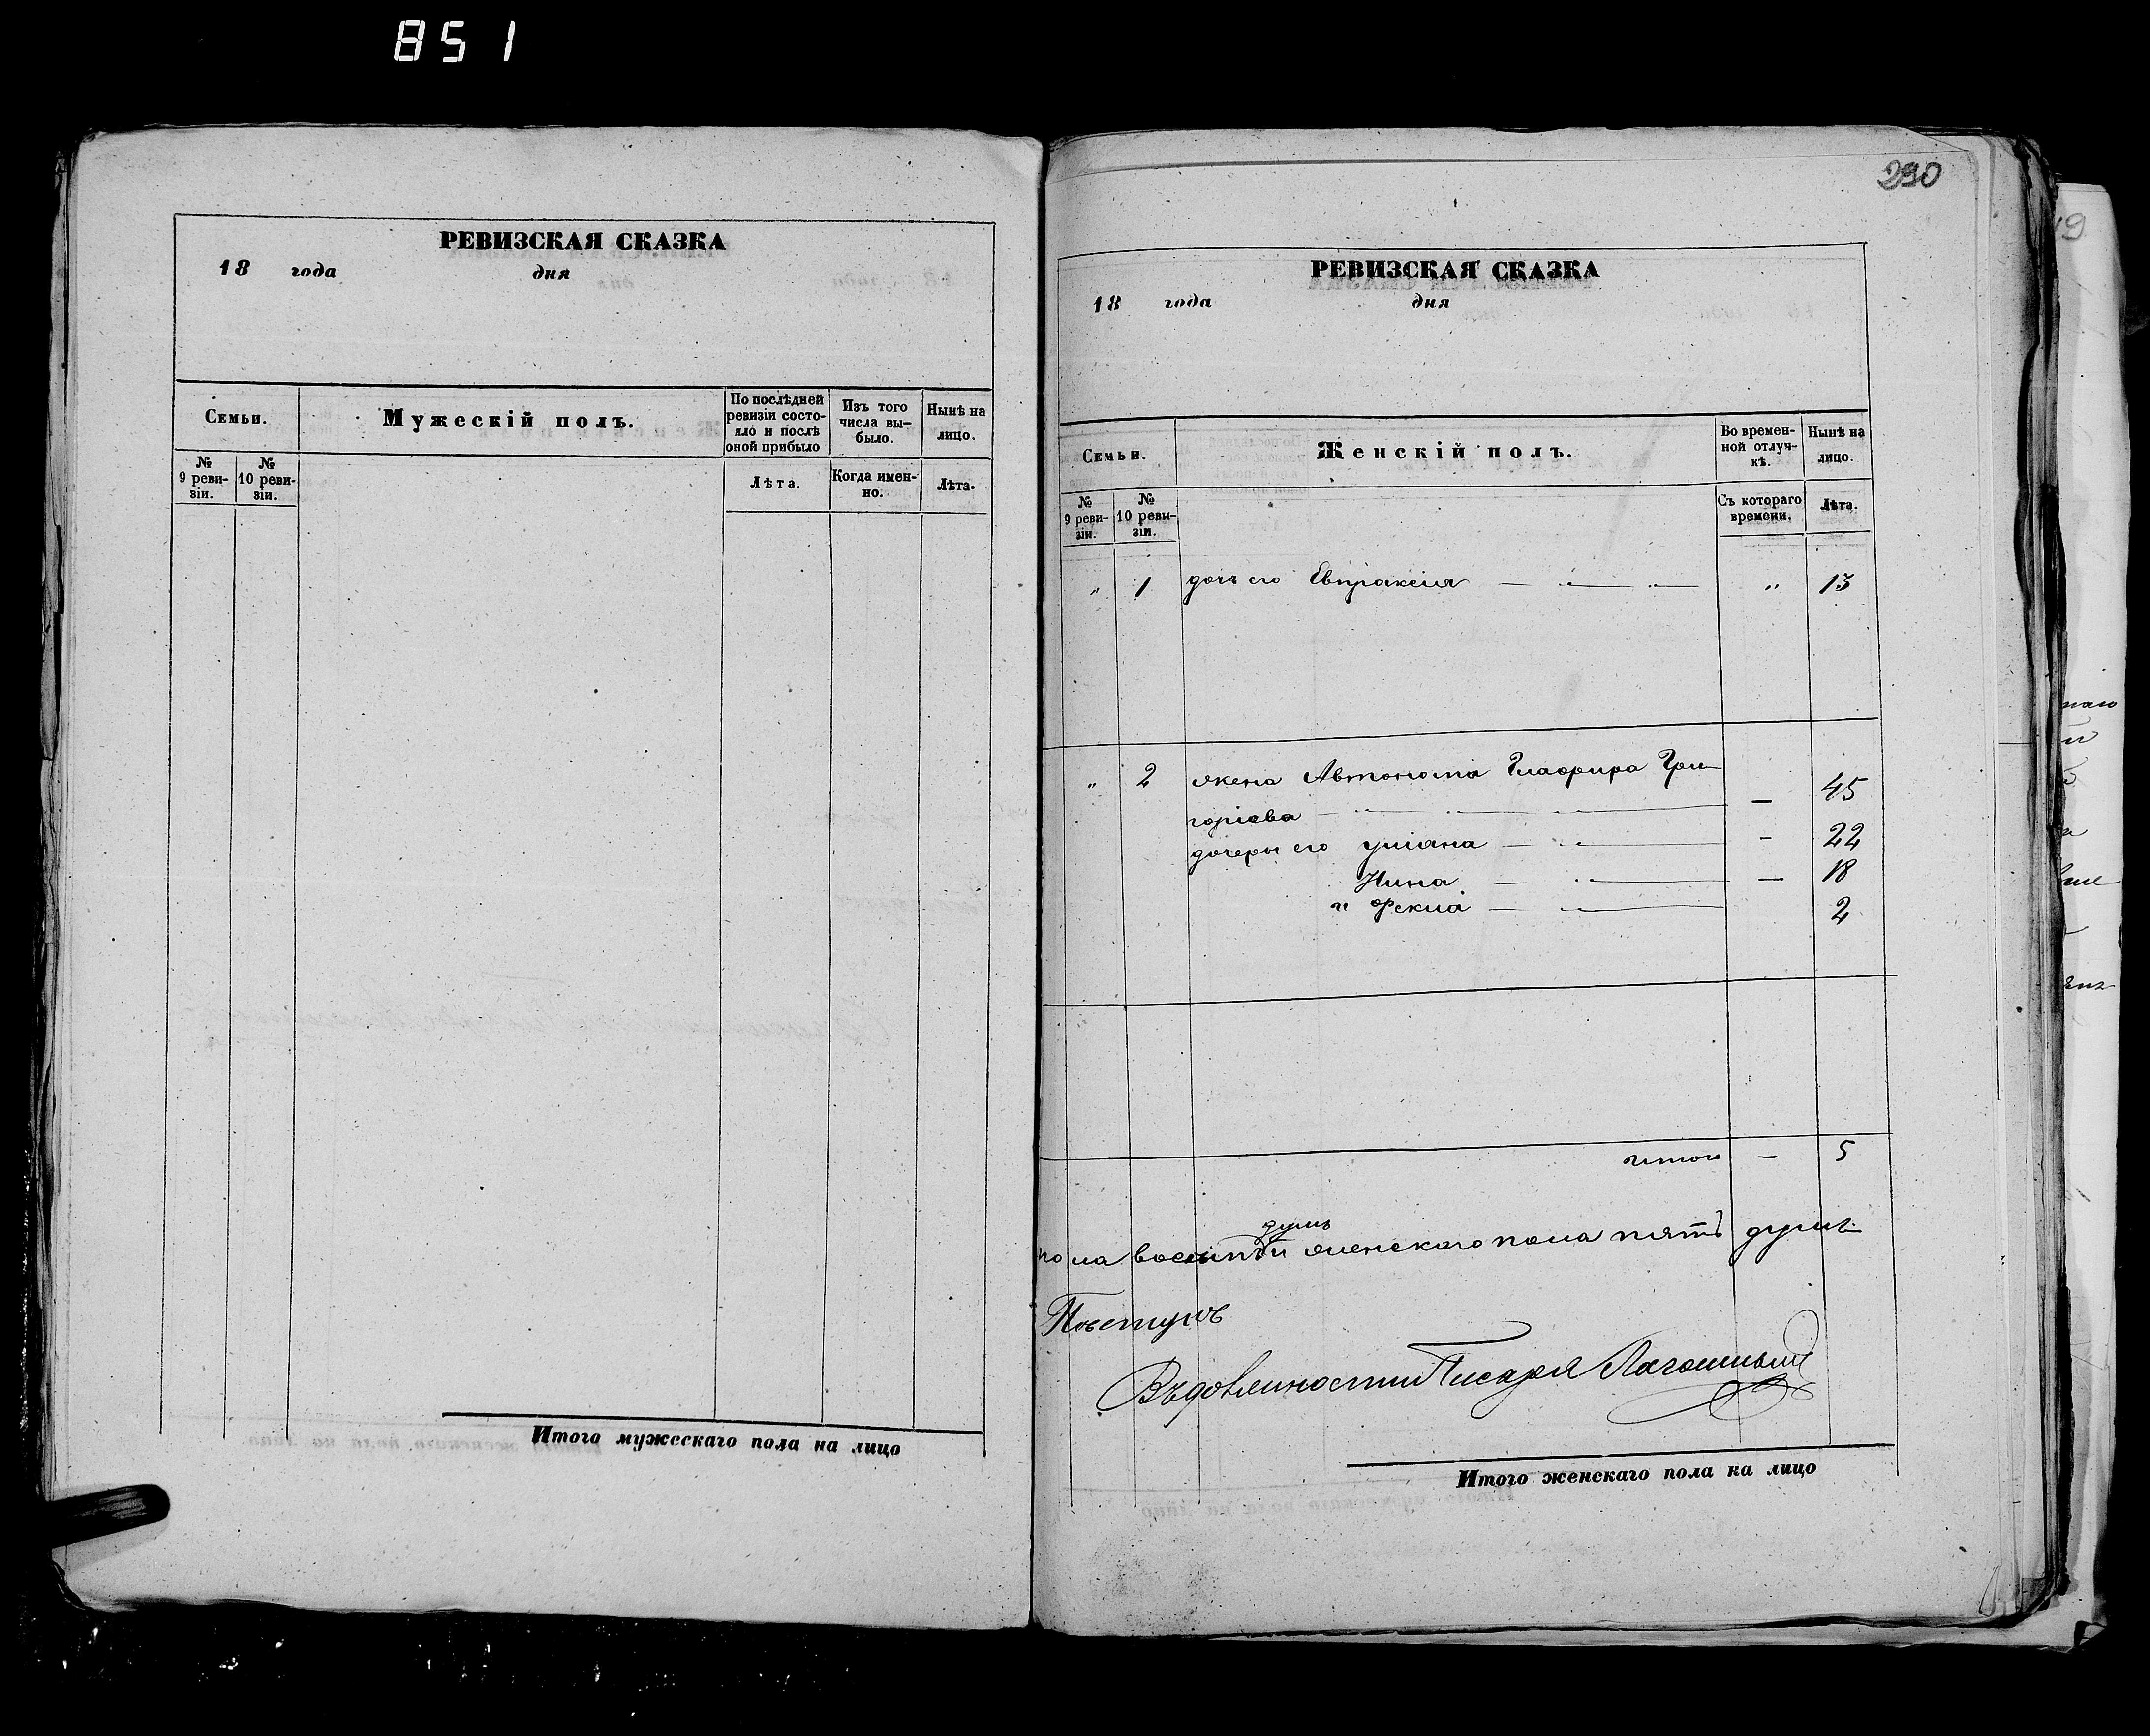 851
РЕВИЗСКАЯ СКАЗКА
18 года дня
Семьи.
Мужескій полъ.
По послѣдней ревизіи состояло и послѣ оной прибыло
Изъ того числа выбыло.
Нынѣ на лицо.
№ 9 ревизіи.
№ 10 ревизіи.
Лѣта.
Когда именно.
Лѣта.
Итого мужескаго пола на лицо
290
РЕВИЗСКАЯ СКАЗКА
18 года дня
Семьи.
Женскій полъ.
Во временной отлучкѣ.
Нынѣ на лицо.
№ 9 ревизіи.
№ 10 ревизіи.
Съ котораго времени.
Лѣта.
„ 1 дочь его Евпраксія — „ — „ — „ 13
„ 2 жена Автонома Глафира Гри-
горіева — 45
дочеры его уліана — 22
Нина — 18
и Фекла — 2
итого — 5
душъ
пола восемъ и женского пола пять душъ
Въ должности Писаря
Итого женскаго пола на лицо